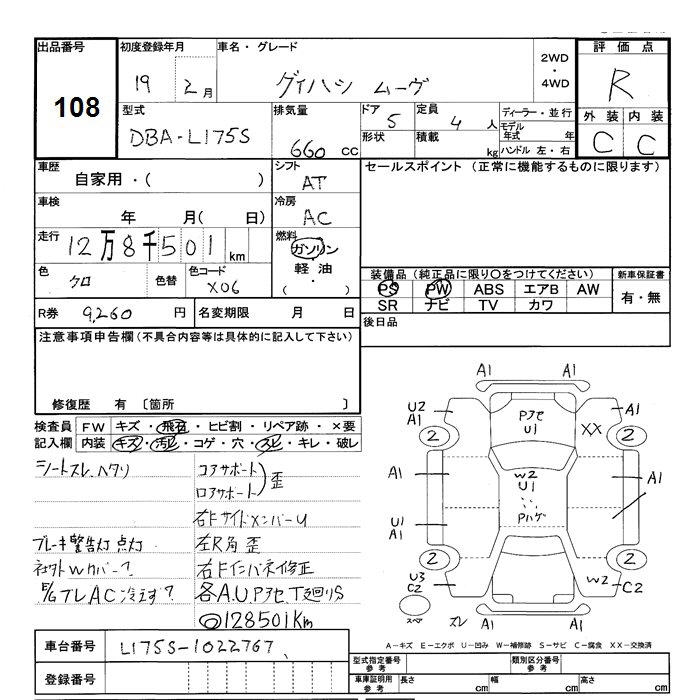 出品番号
108
初度登録年月
19年2月
車名・グレード
ダイハツ ムーヴ
2WD
・
4WD
評価点
R
型式
DBA-L175S
排気量
660 cc
ドア 5
形状
定員 4 人
積載 kg
ディーラー・並行
モデル年式 年
ハンドル 左・右
外装 内装
C C
車歴
自家用・( )
シフト
AT
セールスポイント (正常に機能するものに限ります)
車検
年 月( 日)
冷房
AC
走行
12万8千501 km
燃料
ガソリン
軽油
・
( )
色
クロ
色替
色コード
X06
装備品(純正品に限り○をつけてください)
PS PW ABS エアB AW
SR ナビ TV カワ
新車保証書
有・無
R券 9,260 円
名変期限 月 日
後日品
注意事項申告欄(不具合内容等は具体的に記入して下さい)
修復歴 有〔箇所
検査員記入欄
FW キズ・飛石・ヒビ割・リペア跡・×要
内装 キズ・汚レ・コゲ・穴・スレ・キレ・破レ
シートスレ、ヘタリ
ブレーキ警告灯 点灯
社外Wカバー?
AC冷えず?
コアサポート
ロアサポート
歪
右FサイドメンバーU
左R角 歪
右Fインパネ修正
各A.U
◎128501Km
A1 A1
U2
A1
Pアセ
U1
XX
A1
2 2
A1
W2
U1
Pハゲ
A1
U1
A1
2 2
U3
C2
W2
C2
スペア
スレ
A1 A1
A-キズ E-エクボ U-凹み W-補修跡 S-サビ C-腐食 XX-交換済
車台番号 L175S-1022767
登録番号
型式指定番号
参考
類別区分番号
参考
車庫証明用
参考
長さ cm
幅 cm
高さ cm